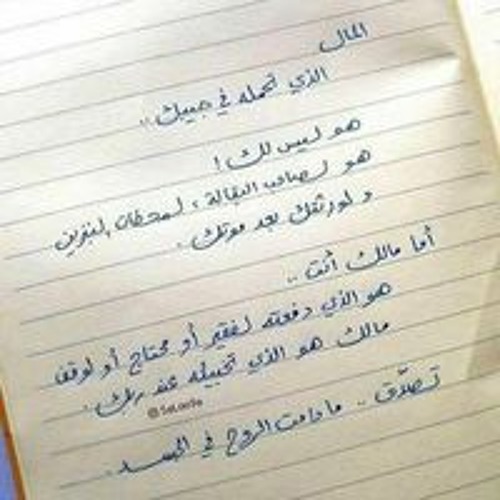 المال
الذي تحمله في جيبك ..
هو ليس لك !
هو لصاحب البقالة ، لمحطات البنزين
و لورثتك بعد موتك .
أما مالك أنت ..
هو الذي دفعته لفقير أو محتاج أو لوقف
مالك هو الذي تخبيئه عند ربك .
تصدّق .. ما دامت الروح في الجسد .